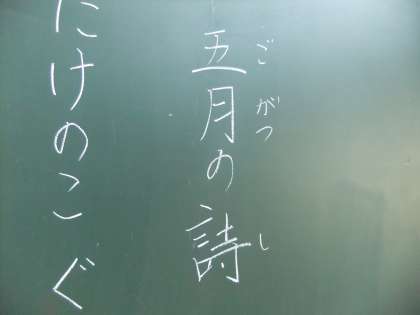 五月の詩
ごがつ
し
たけのこぐ